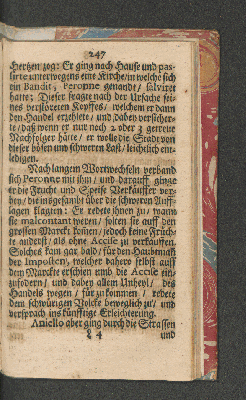 247
Hertzen zog: Er ging nach Hause und pas-
sirte unterwegens eine Kirche/in welche sich
ein Bandit, Peronne genandt/ salviret
hatte; Dieser fragte nach der Ursache sei-
nes verstörten Kopffes/ welchem er dann
den Handel erzehlte/ und dabey versicher-
te/daß wenn er nur noch 2 oder 3 getreue
Nachfolger hätte/ er wolle die Stadt von
dieser bösen und schweren Last/ leichtlich ent-
ledigen.
Nach langem Wortwechseln verband
sich Peronne mit ihm/ und darauff ginge
er die Frucht und Speise Verkäuffer vor-
bey/ die insgesambt über die schweren Auff-
lagen klagten: Er redete ihnen zu/ wann
sie malcontant weren/ solten sie auff den
grossen Marckt kom̃en/jedoch keine Früch-
te anderst/ als ohne Accise zu verkauffen.
Solches kam gar bald/ für den Haubtman
der Impossen, welcher dahero selbst auff
dem Marckte erschien umb die Accise ein-
zufodern/ und dabey allem Unheyl/ des
Handels wegen/ für zukommen/ redete
dem schwürigen Volcke beweglich zu/ und
versprach ins künfftige Erleichterung.
Aniello aber ging durch die Strassen
und